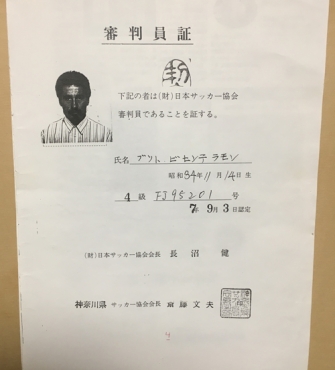 審判員証
下記の者は(財)日本サッカー協会
審判員であることを証する。
氏名 プリト ビセンテ ラモン
昭和34年11月14日生
4級 FJ95201号
7年9月3日認定
(財)日本サッカー協会会長 長沼 健
神奈川県サッカー協会会長 斎藤文夫